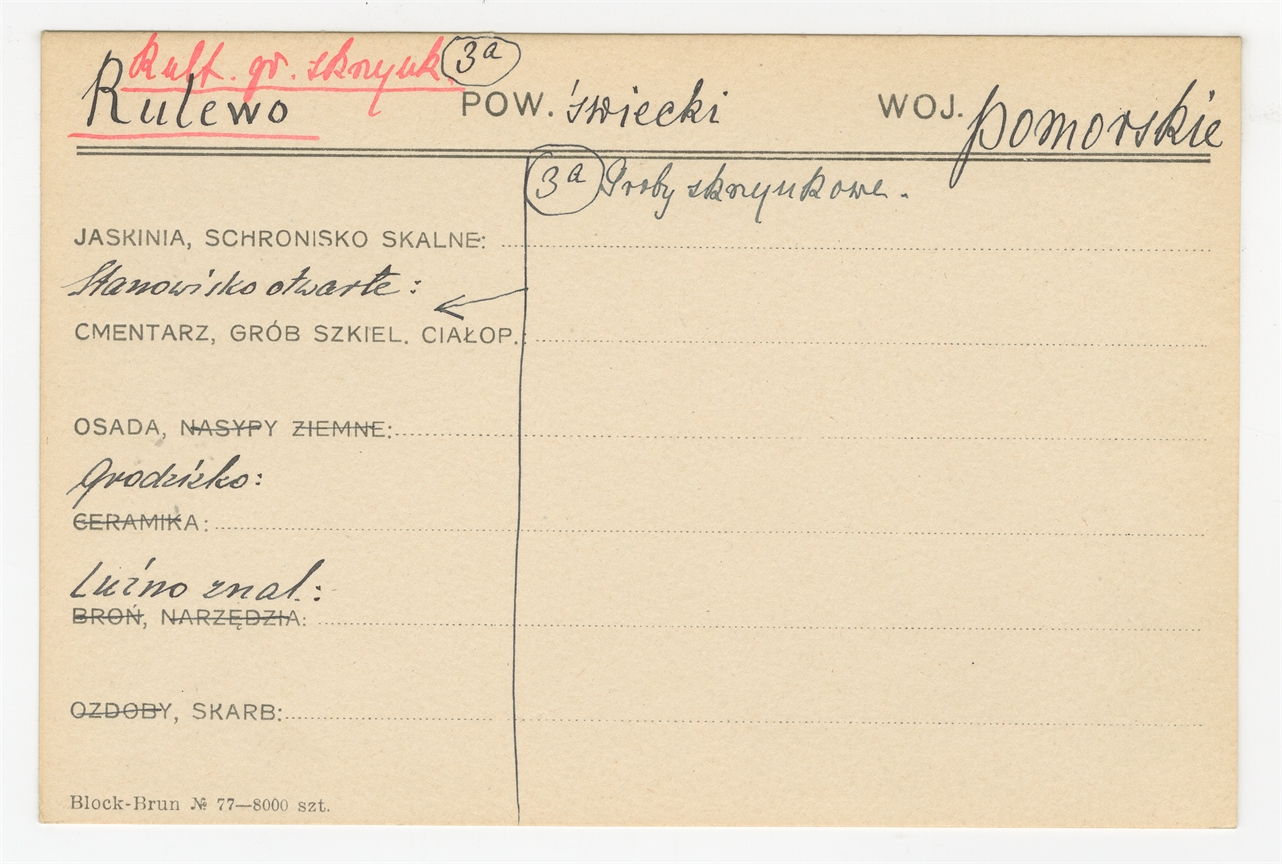 Kult. gr. skrzynk. 3a
Rulewo POW. świecki WOJ. pomorskie
3a Groby skrzynkowe.
JASKINIA, SCHRONISKO SKALNE:
Stanowisko otwarte:
CMENTARZ, GRÓB SZKIEL. CIAŁOP.:
OSADA, NASYPY ZIEMNE:
Grodzisko:
CERAMIKA:
Luźno znal.:
BROŃ, NARZĘDZIA:
OZDOBY, SKARB:
Block-Brun № 77—8000 szt.